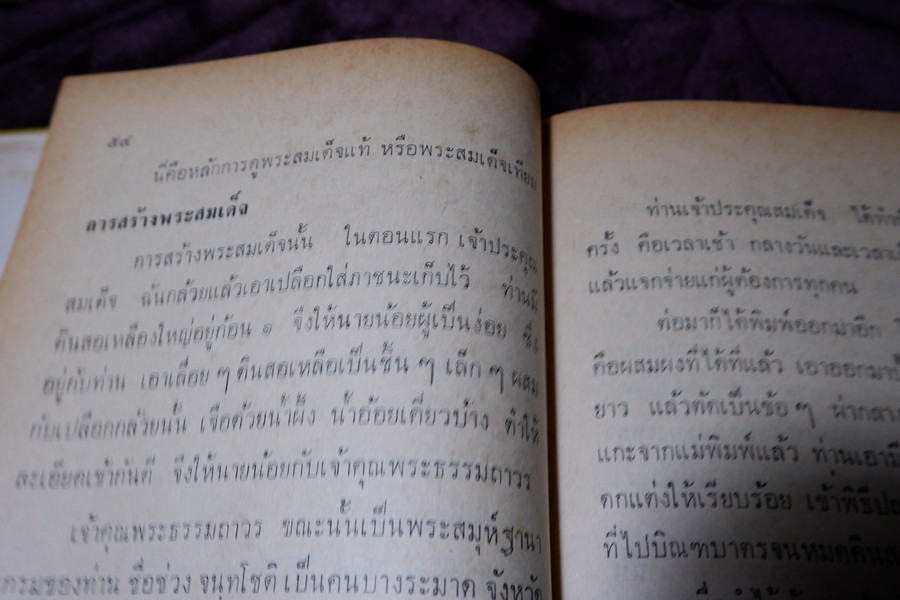 ๕๔
นี่คือหลักการดูพระสมเด็จแท้ หรือพระสมเด็จเทียม
การสร้างพระสมเด็จ
การสร้างพระสมเด็จนั้น ในตอนแรก เจ้าประคุณ
สมเด็จ ฉันกล้วยแล้วเอาเปลือกใส่ภาชนะเก็บไว้ ท่านมี
ดินสอเหลืองใหญ่อยู่ก้อน ๑ จึงให้นายน้อยผู้เป็นง่อย ซึ่ง
อยู่กับท่าน เอาเลื่อย ๆ ดินสอเหลือเป็นชิ้น ๆ เล็ก ๆ ผสม
กับเปลือกกล้วยนั้น เจือด้วยน้ำผึ้ง น้ำอ้อยเคี่ยวบ้าง ตำให้
ละเอียดเข้ากันดี จึงให้นายน้อยกับเจ้าคุณพระธรรมถาวร
เจ้าคุณพระธรรมถาวร ขณะนั้นเป็นพระสมุห์ฐานา
กรมของท่าน ชื่อช่วง จนฺทโชติ เป็นคนบางระมาด จังหวัด
ท่านเจ้าประคุณสมเด็จ ได้ทำ
ครั้ง คือเวลาเช้า กลางวันและเวลา
แล้วแจกจ่ายแก่ผู้ต้องการทุกคน
ต่อมาก็ได้พิมพ์ออกมาอีก
คือผสมผงที่ได้ที่แล้ว เอาออกมา
ยาว แล้วตัดเป็นข้อ ๆ ผ่ากลาง
แกะจากแม่พิมพ์แล้ว ท่านเอา
ตกแต่งให้เรียบร้อย เข้าพิธี
ที่ไปบิณฑบาตรจนหมดดิน